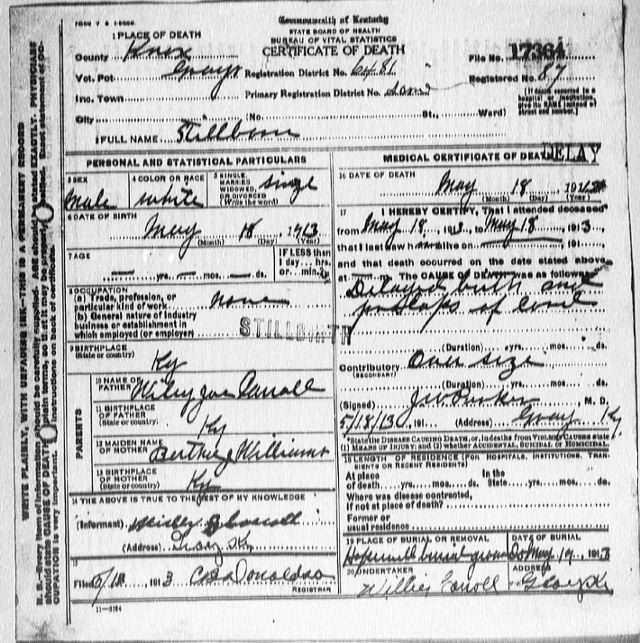 FORM V S 1-200M.
Commonwealth of Kentucky
STATE BOARD OF HEALTH
BUREAU OF VITAL STATISTICS
CERTIFICATE OF DEATH
1 PLACE OF DEATH
County Knox
File No. 17364
Vot. Pct Grays Registration District No. 6481
Registered No. 87
Inc. Town Primary Registration District No.
[If death occurred in a hospital or institution, give its NAME instead of street and number.]
City (No. St., Ward)
2 FULL NAME Stillborn
PERSONAL AND STATISTICAL PARTICULARS
3 SEX Male
4 COLOR OR RACE White
5 SINGLE, MARRIED, WIDOWED, OR DIVORCED (Write the word) Single
6 DATE OF BIRTH
May 18 1913
(Month) (Day) (Year)
7 AGE
yrs. mos. ds.
IF LESS than 1 day.. hrs. or.. min.?
8 OCCUPATION
(a) Trade, profession, or particular kind of work none
(b) General nature of industry business or establishment in which employed (or employer)
STILLBIRTH
9 BIRTHPLACE
(State or country) Ky
PARENTS
10 NAME OF FATHER Wiley Carroll
11 BIRTHPLACE OF FATHER
(State or country) Ky
12 MAIDEN NAME OF MOTHER Berthie J Williams
13 BIRTHPLACE OF MOTHER
(State or country) Ky
14 THE ABOVE IS TRUE TO THE BEST OF MY KNOWLEDGE
(Informant) Carroll
(Address) Gray Ky
15
Filed 5/18, 1913 Donaldson
REGISTRAR
11-3184
MEDICAL CERTIFICATE OF DEATH
DELAY
16 DATE OF DEATH
May 18 191
(Month) (Day) (Year)
17 I HEREBY CERTIFY, That I attended deceased
from May 18, 1913, to May 18 1913
that I last saw h alive on 191
and that death occurred on the date stated above,
at m. The CAUSE OF DEATH was as follows:
Delayed birth and
prolaps of cord
(Duration) yrs. mos. ds.
Contributory Over size
(SECONDARY)
(Duration) yrs. mos. ds.
(Signed) M. D.
5/18/13, 191 (Address) Gray Ky
*State the DISEASE CAUSING DEATH, or, in deaths from VIOLENT CAUSES state (1) MEANS OF INJURY; and (2) whether ACCIDENTAL, SUICIDAL or HOMICIDAL.
18 LENGTH OF RESIDENCE (FOR HOSPITALS, INSTITUTIONS, TRANSIENTS OR RECENT RESIDENTS)
At place of death yrs. mos. ds. In the State yrs. mos. ds.
Where was disease contracted, if not at place of death?
Former or usual residence
19 PLACE OF BURIAL OR REMOVAL
Hopewell burial ground
DATE OF BURIAL
May 19, 1913
20 UNDERTAKER
Willie Carroll
ADDRESS
Gray Ky
WRITE PLAINLY, WITH UNFADING INK—THIS IS A PERMANENT RECORD